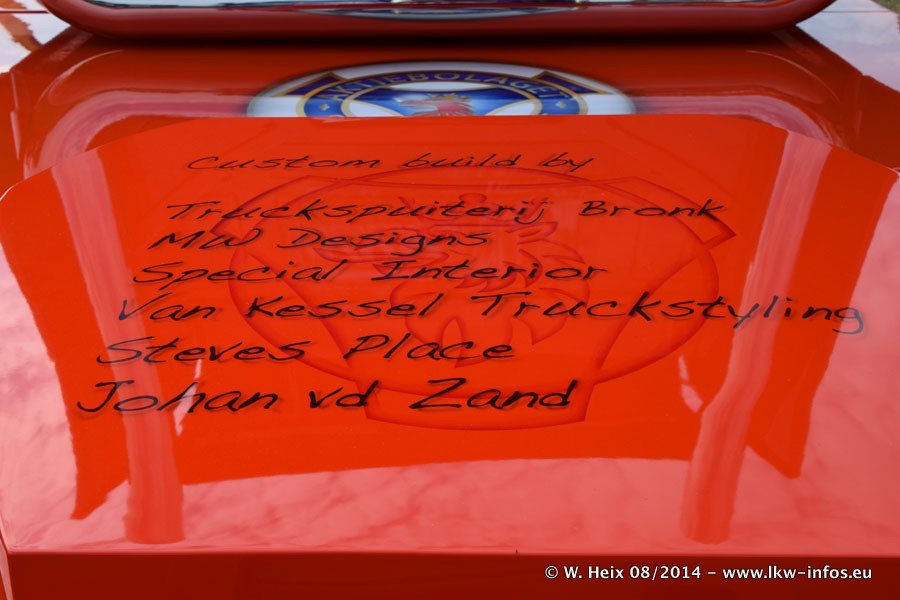 KNIEBOLAGET
Custom build by
Truckspuiterij Bronk
MW Designs
Special Interior
Van Kessel Truckstyling
Steves Place
Johan vd Zand
© W. Heix 08/2014 - www.lkw-infos.eu